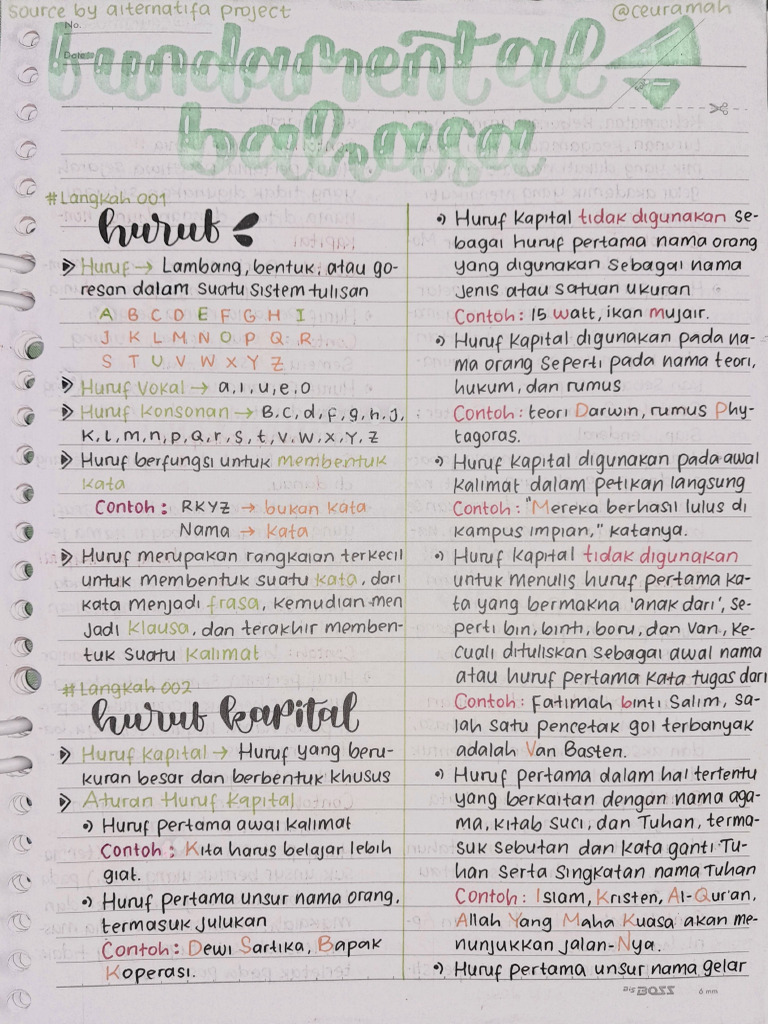 source by alternatifa project
@ceuramah
No.
Date
fundamental
bahasa
#Langkah 001
huruf
Huruf → Lambang, bentuk, atau go-
resan dalam suatu sistem tulisan
A B C D E F G H I
J K L M N O P Q R
S T U V W X Y Z
Huruf Vokal → a, i, u, e, o
Huruf Konsonan → B, c, d, f, g, h, j,
K, l, m, n, p, Q, r, s, t, v, w, x, y, z
Huruf berfungsi untuk membentuk
kata
Contoh : RKYZ → bukan kata
Nama → kata
Huruf merupakan rangkaian terkecil
untuk membentuk suatu kata, dari
kata menjadi frasa, kemudian men
jadi klausa, dan terakhir memben-
tuk suatu kalimat
#Langkah 002
huruf kapital
Huruf kapital → Huruf yang beru-
kuran besar dan berbentuk khusus
Aturan Huruf Kapital
•) Huruf pertama awal kalimat
Contoh : Kita harus belajar lebih
giat.
•) Huruf pertama unsur nama orang,
termasuk julukan
Contoh : Dewi Sartika, Bapak
Koperasi.
•) Huruf kapital tidak digunakan se-
bagai huruf pertama nama orang
yang digunakan sebagai nama
jenis atau satuan ukuran
Contoh : 15 watt, ikan mujair.
•) Huruf kapital digunakan pada na-
ma orang seperti pada nama teori,
hukum, dan rumus
Contoh : teori Darwin, rumus Phy-
tagoras.
•) Huruf kapital digunakan pada awal
kalimat dalam petikan langsung
Contoh : "Mereka berhasil lulus di
kampus impian," katanya.
•) Huruf kapital tidak digunakan
untuk menulis huruf pertama ka-
ta yang bermakna 'anak dari', se-
perti bin, binti, boru, dan van, ke-
cuali dituliskan sebagai awal nama
atau huruf pertama kata tugas dari
Contoh : Fatimah binti Salim, sa-
lah satu pencetak gol terbanyak
adalah Van Basten.
•) Huruf pertama dalam hal tertentu
yang berkaitan dengan nama aga-
ma, kitab suci, dan Tuhan, terma-
suk sebutan dan kata ganti Tu-
han serta singkatan nama Tuhan
Contoh : Islam, Kristen, Al-Qur'an,
Allah Yang Maha Kuasa akan me-
nunjukkan jalan-Nya.
•) Huruf pertama unsur nama gelar
BOSS 6 mm